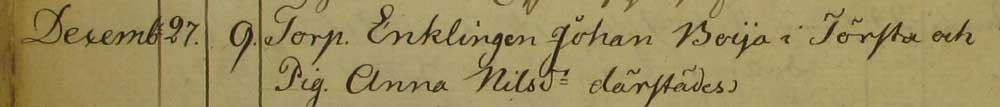 Decemb 27. 9. Torp. Enklingen Johan Boija i Törsta och
Pig. Anna Nilsd:r därstädes